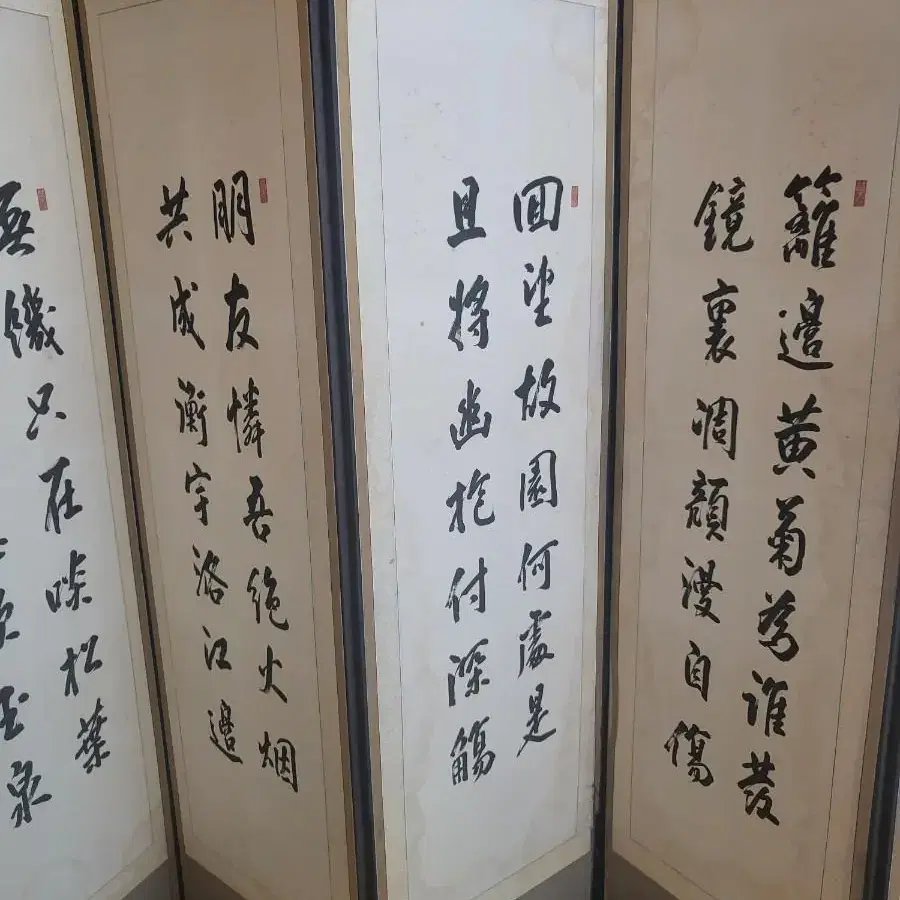 籬邊黃菊爲誰發
鏡裏凋顔漫自傷
回望故園何處是
且將幽抱付深觴
朋友憐吾絶火烟
共成衡宇洛江邊
無饑只在啖松葉
玉泉